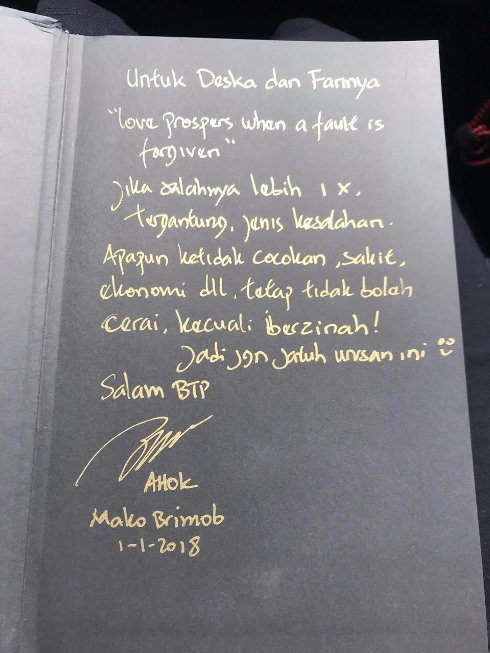 Untuk Deska dan Fannya
"Love prospers when a fault is
forgiven"
jika salahnya lebih 1 x,
tergantung, jenis kesalahan.
Apapun ketidak cocokan, sakit,
ekonomi dll, tetap tidak boleh
cerai, kecuali berzinah!
Jadi jgn jatuh urusan ini
Salam BTP
AHOK
Mako Brimob
1-1-2018